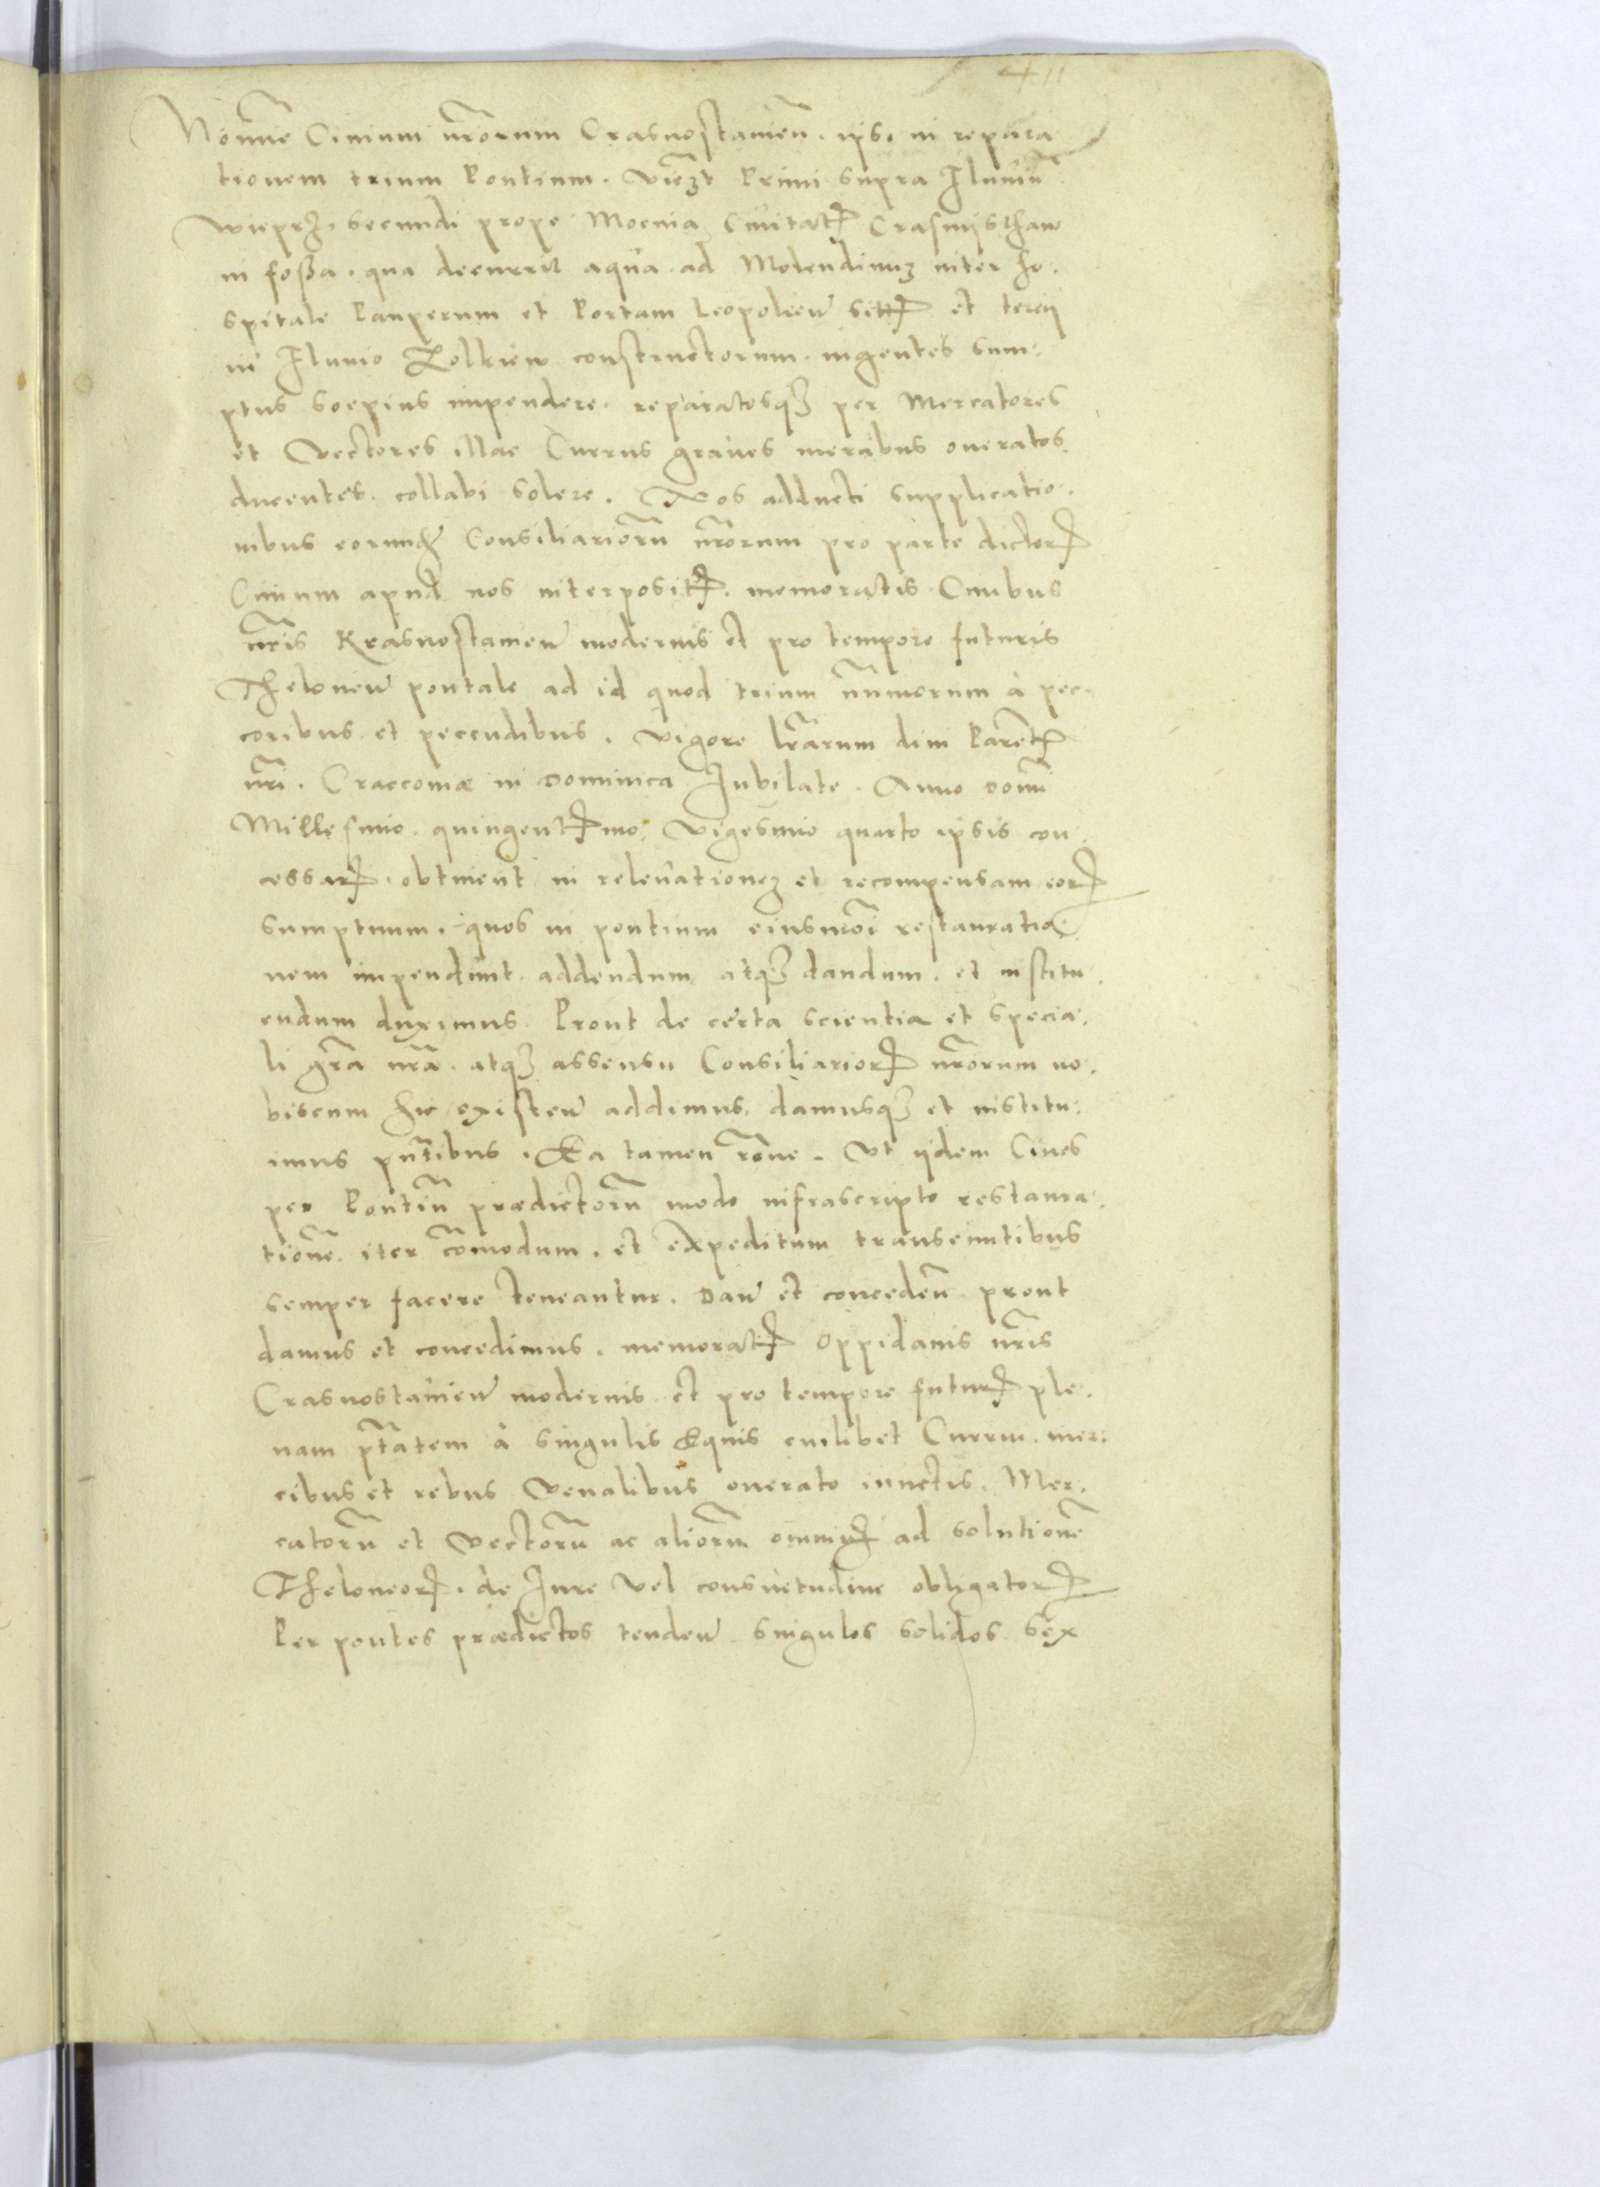 411
Nomine Civium nrōrum Crasnostavien̄. ips. in repara
tionem trium Pontium. Videlzt Primi supra Fluviū
wieprz, secundi prope Moenia Civitatis Crasnijsthaw
in fossa. qua decurrit aqua ad Molendinum inter ho.
spitale Pauperum et Portam Leopolien̄ sitis et tercij
in Fluvio Zolkiew constructorum. ingentes sum.
ptus soepius impendere. reparatosqȝ per Mercatores
et Vectores illac Currus graves mercibus oneratos
ducentes. collabi solere. Nos adducti supplicatio.
nibus eorundē Consiliariorū nrōrum pro parte dictorum
Civium apud nos interpositis. memoratis Civibus
nr̄is Krasnostavien̄ modernis et pro tempore futuris
Theloneū pontale ad id quod trium nūmorum à pec.
coribus et peccudibus. vigore lrārum dini Parentis
nr̄i. Craccoviæ in Dominica Jubilate. Anno Domī
Millesimo. quingentesimo. Vigesimo quarto ipsis con
cessarum. obtinent in relevationem et recompensam eorum
sumptuum. quos in pontium eiusmōi restauratio
nem impendunt addendum atqȝ dandum. et institu.
endum duximus Prout de certa scientia et specia.
li gr̄a nr̄a. atqȝ assensu Consiliariorum nrōrum no.
biscum hic existen̄ addimus damusqȝ et institu.
imus pn̄tibus. Ea tamen rōne. Ut ijdem Cives
per Pontiū prædictorū modo infrascripto restaura.
tionē. iter cōmodum. et expeditum transeuntibus
semper facere teneantur. Dan̄ et conceden̄ prout
damus et concedimus. memoratis oppidanis nr̄is
Crasnostavien̄ modernis et pro tempore futuris ple.
nam ptātem à singulis Equis cuilibet Currui mer.
cibus et rebus Venalibus onerato iunctis. Mer.
catorū et Vectorū ac aliorū omnium ad solutionē
Theloneorum. de Jure vel consvetudine obligatorum
Per pontes prædictos tenden̄ singulos solidos sex